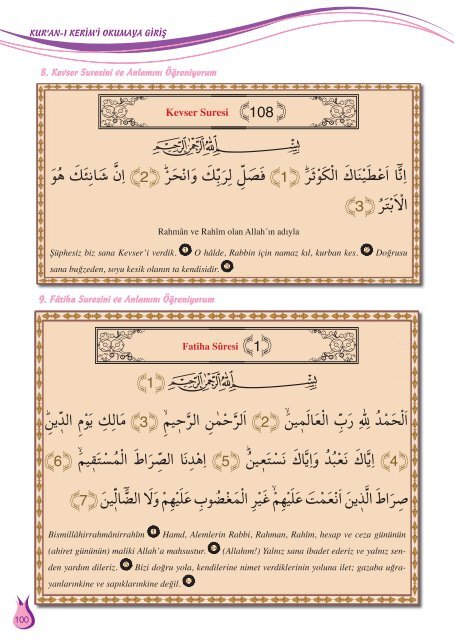 KUR'AN-I KERİM'İ OKUMAYA GİRİŞ
8. Kevser Suresini ve Anlamını Öğreniyorum
Kevser Suresi 108
بِسْمِ اللّٰهِ الرَّحْمٰنِ الرَّحِيمِ
اِنَّٓا اَعْطَيْنَاكَ الْكَوْثَرَۜ (1) فَصَلِّ لِرَبِّكَ وَانْحَرْۜ (2) اِنَّ شَانِئَكَ هُوَ
الْاَبْتَرُ (3)
Rahmân ve Rahîm olan Allah´ın adıyla
Şüphesiz biz sana Kevser'i verdik. O hâlde, Rabbin için namaz kıl, kurban kes. Doğrusu
sana buğzeden, soyu kesik olanın ta kendisidir.
9. Fâtiha Suresini ve Anlamını Öğreniyorum
Fatiha Sûresi 1
بِسْمِ اللّٰهِ الرَّحْمٰنِ الرَّحِيمِ (1)
اَلْحَمْدُ لِلّٰهِ رَبِّ الْعَالَم۪ينَۙ (2) اَلرَّحْمٰنِ الرَّح۪يمِۙ (3) مَالِكِ يَوْمِ الدّ۪ينِۜ
(4) اِيَّاكَ نَعْبُدُ وَاِيَّاكَ نَسْتَع۪ينُۜ (5) اِهْدِنَا الصِّرَاطَ الْمُسْتَق۪يمَۙ (6)
صِرَاطَ الَّذ۪ينَ اَنْعَمْتَ عَلَيْهِمْۙ غَيْرِ الْمَغْضُوبِ عَلَيْهِمْ وَلَا الضَّٓالّ۪ينَ (7)
Bismillâhirrahmânirrahîm Hamd, Alemlerin Rabbi, Rahman, Rahîm, hesap ve ceza gününün
(ahiret gününün) maliki Allah'a mahsustur. (Allahım!) Yalnız sana ibadet ederiz ve yalnız sen-
den yardım dileriz. Bizi doğru yola, kendilerine nimet verdiklerinin yoluna ilet; gazaba uğra-
yanlarınkine ve sapıklarınkine değil.
100